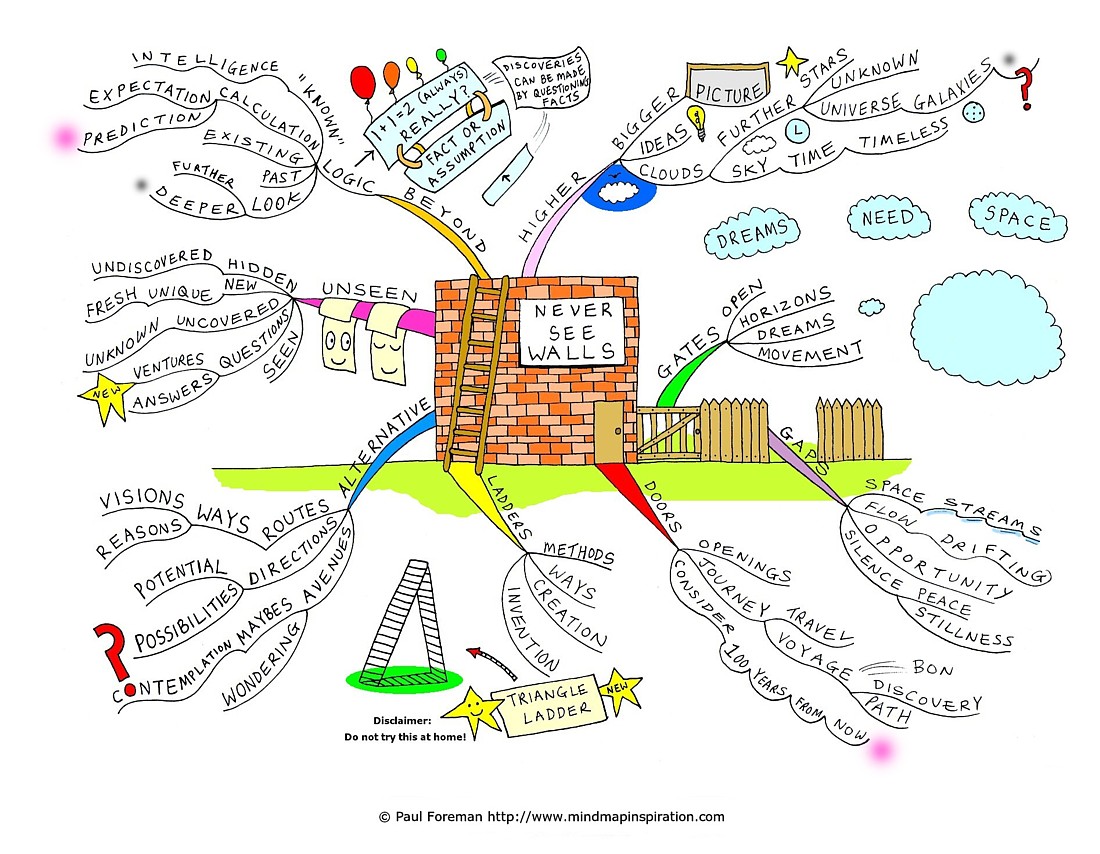 NEVER
SEE
WALLS
BEYOND
LOGIC
"KNOWN"
INTELLIGENCE
CALCULATION
EXPECTATION
PREDICTION
EXISTING
PAST
LOOK
FURTHER
DEEPER
1+1=2 (ALWAYS)
REALLY?
FACT OR
ASSUMPTION
DISCOVERIES
CAN BE MADE
BY QUESTIONING
FACTS
HIGHER
BIGGER
PICTURE
IDEAS
CLOUDS
FURTHER
STARS
UNKNOWN
UNIVERSE
GALAXIES
?
SKY
TIME
TIMELESS
DREAMS
NEED
SPACE
UNSEEN
HIDDEN
UNDISCOVERED
NEW
FRESH UNIQUE
UNCOVERED
UNKNOWN
QUESTIONS
VENTURES
ANSWERS
NEW
SEEN
GATES
OPEN
HORIZONS
DREAMS
MOVEMENT
GAPS
SPACE STREAMS
FLOW DRIFTING
OPPORTUNITY
SILENCE PEACE
STILLNESS
ALTERNATIVE
ROUTES
WAYS
VISIONS
REASONS
DIRECTIONS
POTENTIAL
POSSIBILITIES
AVENUES
MAYBES
CONTEMPLATION
WONDERING
?
LADDERS
METHODS
WAYS
CREATION
INVENTION
DOORS
OPENINGS
JOURNEY
TRAVEL
VOYAGE
BON
DISCOVERY
PATH
CONSIDER
100 YEARS FROM NOW
TRIANGLE
LADDER
NEW
Disclaimer:
Do not try this at home!
© Paul Foreman http://www.mindmapinspiration.com